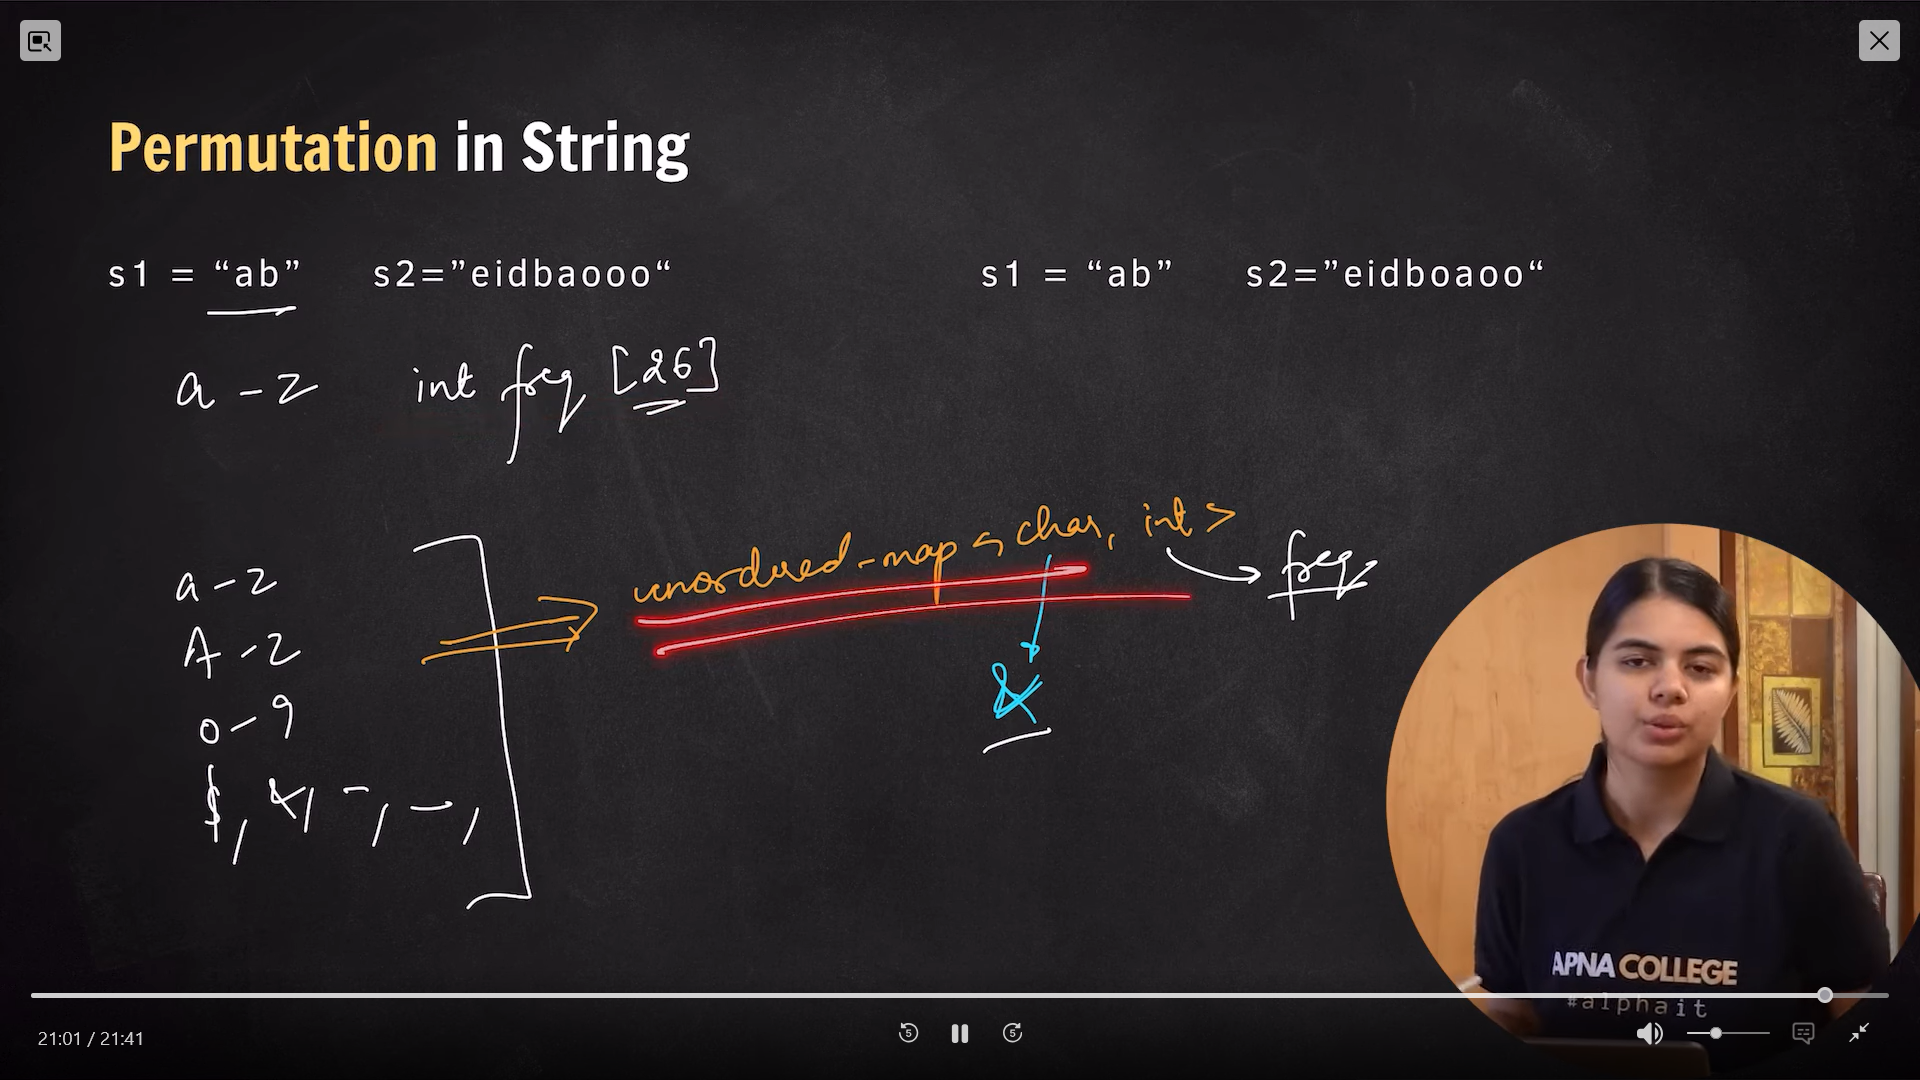 Permutation in String
s1 = “ab” s2=”eidbaooo“
s1 = “ab” s2=”eidboaoo“
a - z int freq [26]
unordered-map < char, int > freq
a - z
A - Z
0 - 9
$, &, -, -,
&
APNA COLLEGE
#alphait
21:01 / 21:41
5 5